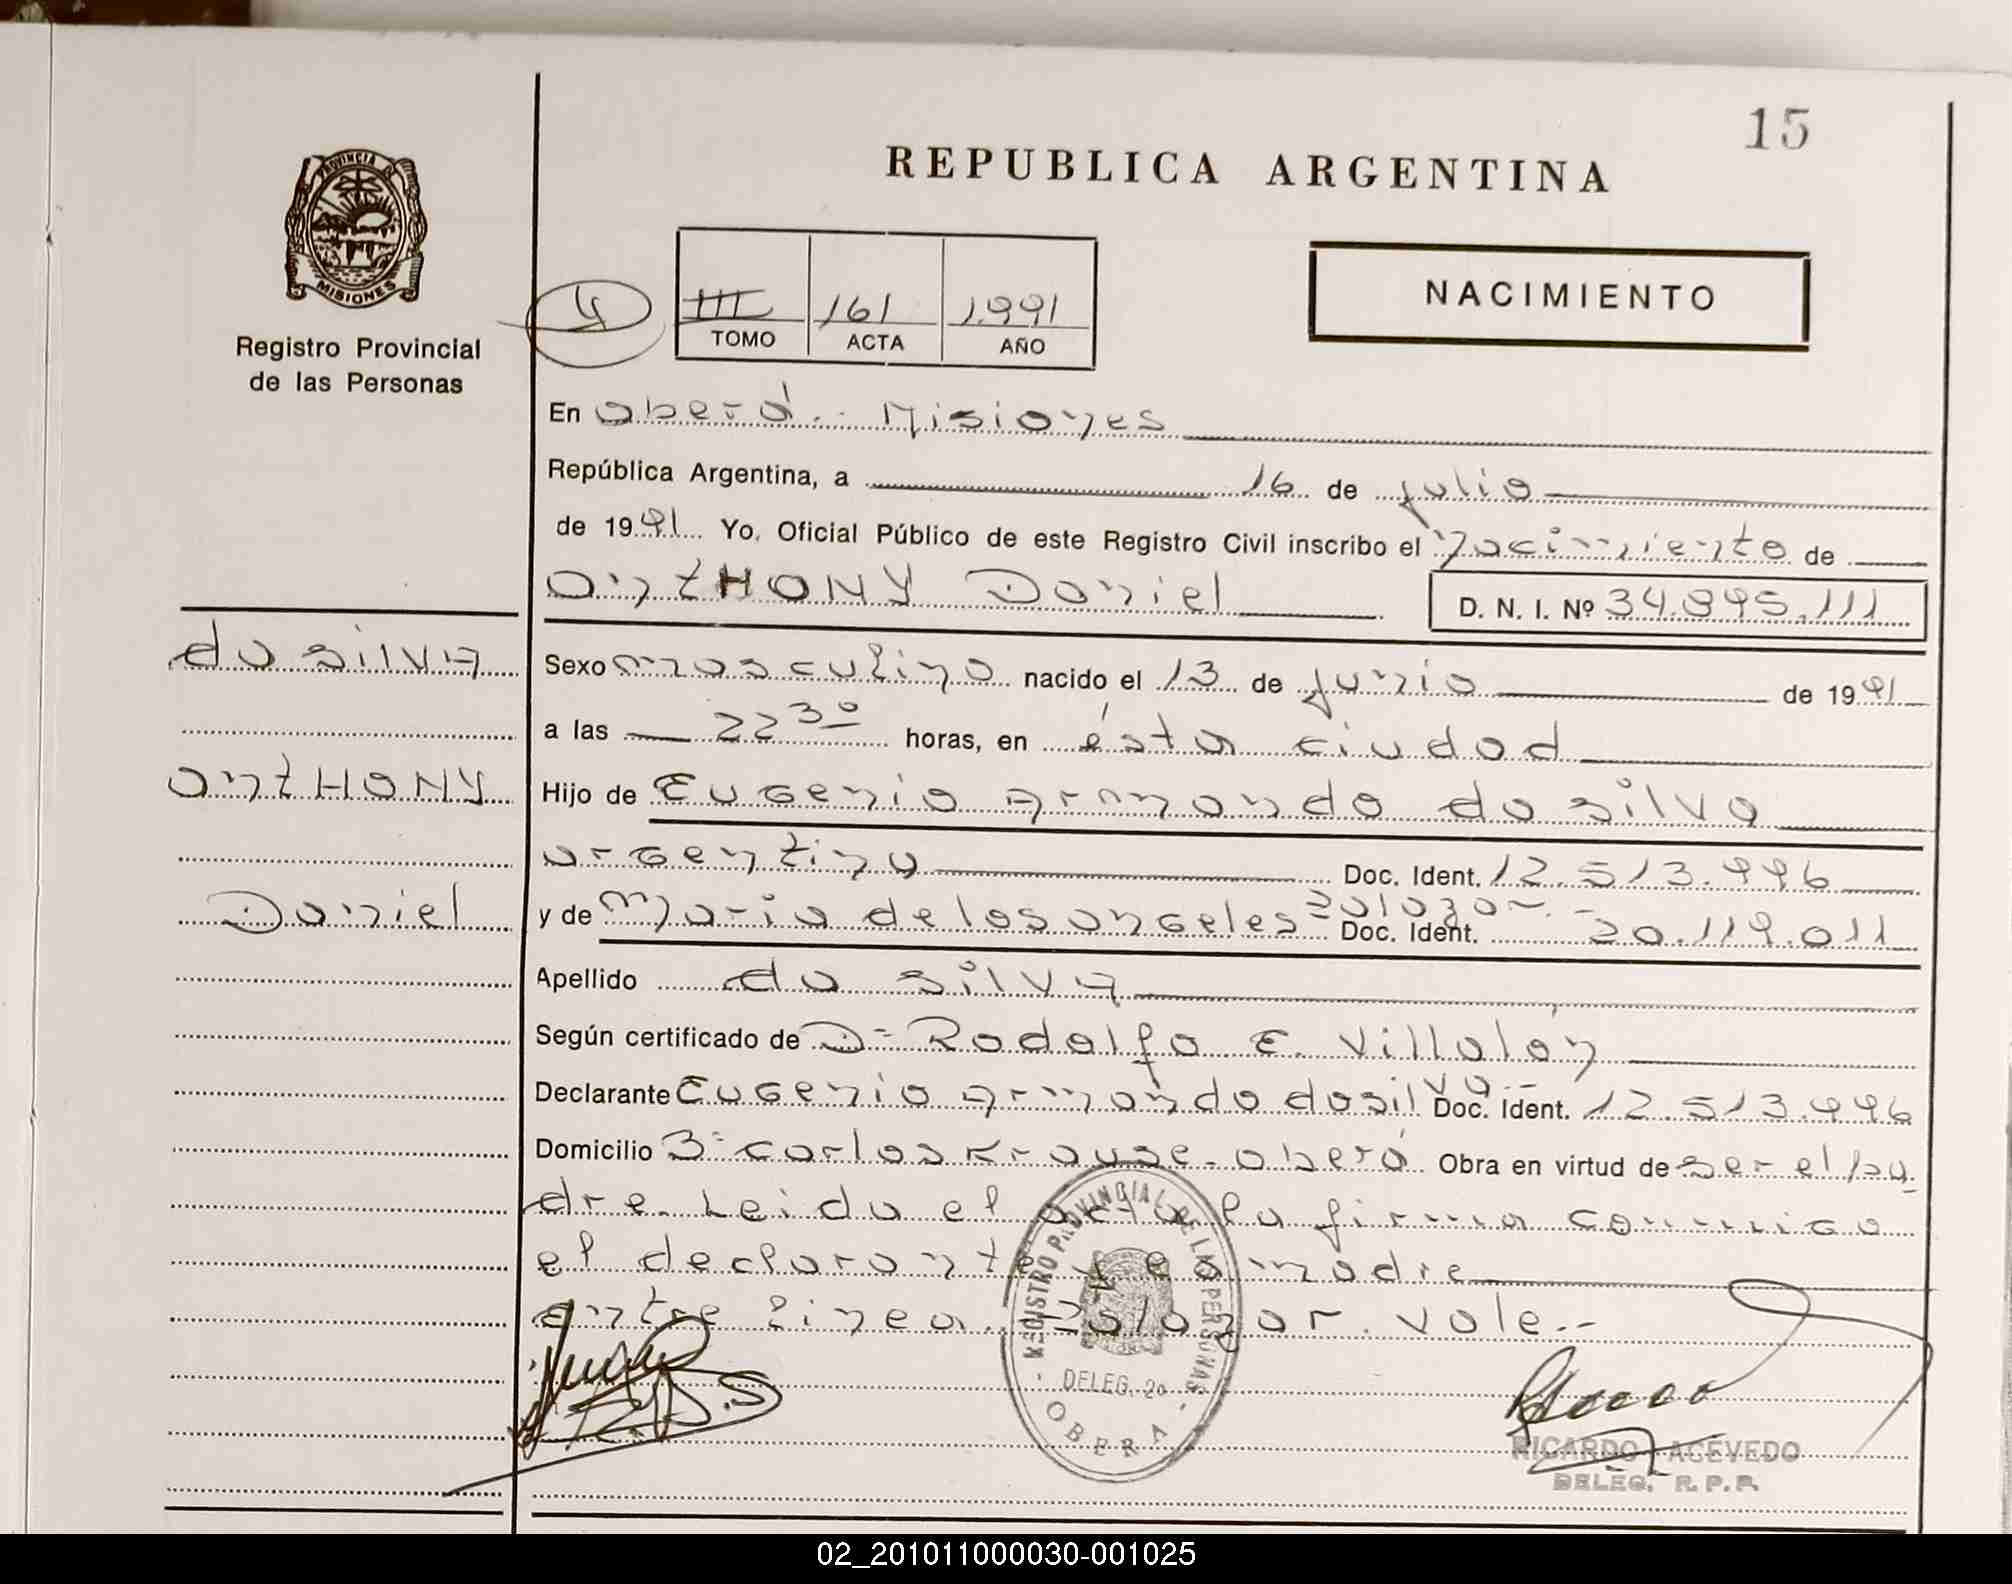 15
REPUBLICA ARGENTINA
PROVINCIA DE
MISIONES
Registro Provincial
de las Personas
4
III 161 1.991
TOMO ACTA AÑO
NACIMIENTO
En oberá.- Misiones
República Argentina, a 16 de julio
de 1991 Yo, Oficial Público de este Registro Civil inscribo el nacimiento de
anTHONY Daniel D. N. I. Nº 34.895.111
da silva
anTHONY
Daniel
Sexo masculino nacido el 13 de junio de 1991
a las 22 30 horas, en ésta ciudad
Hijo de Eugenio Armando da silva
argentino Doc. Ident. 12.513.996
y de maria de los angeles Doc. Ident. 20.119.011
Apellido da silva
Según certificado de D= Rodolfo E. Villalón
Declarante Eugenio Armando da silva.- Doc. Ident. 12.513.996
Domicilio 3= carlos Krause - oberá Obra en virtud de ser el pa
dre. Leida el acta la firma conmigo
el declarante y la madre
entre linea. vale.-
REGISTRO PROVINCIAL DE LAS PERSONAS
DELEG. 2a
OBERA
RICARDO ACEVEDO
DELEG. R. P. P.
02_201011000030-001025